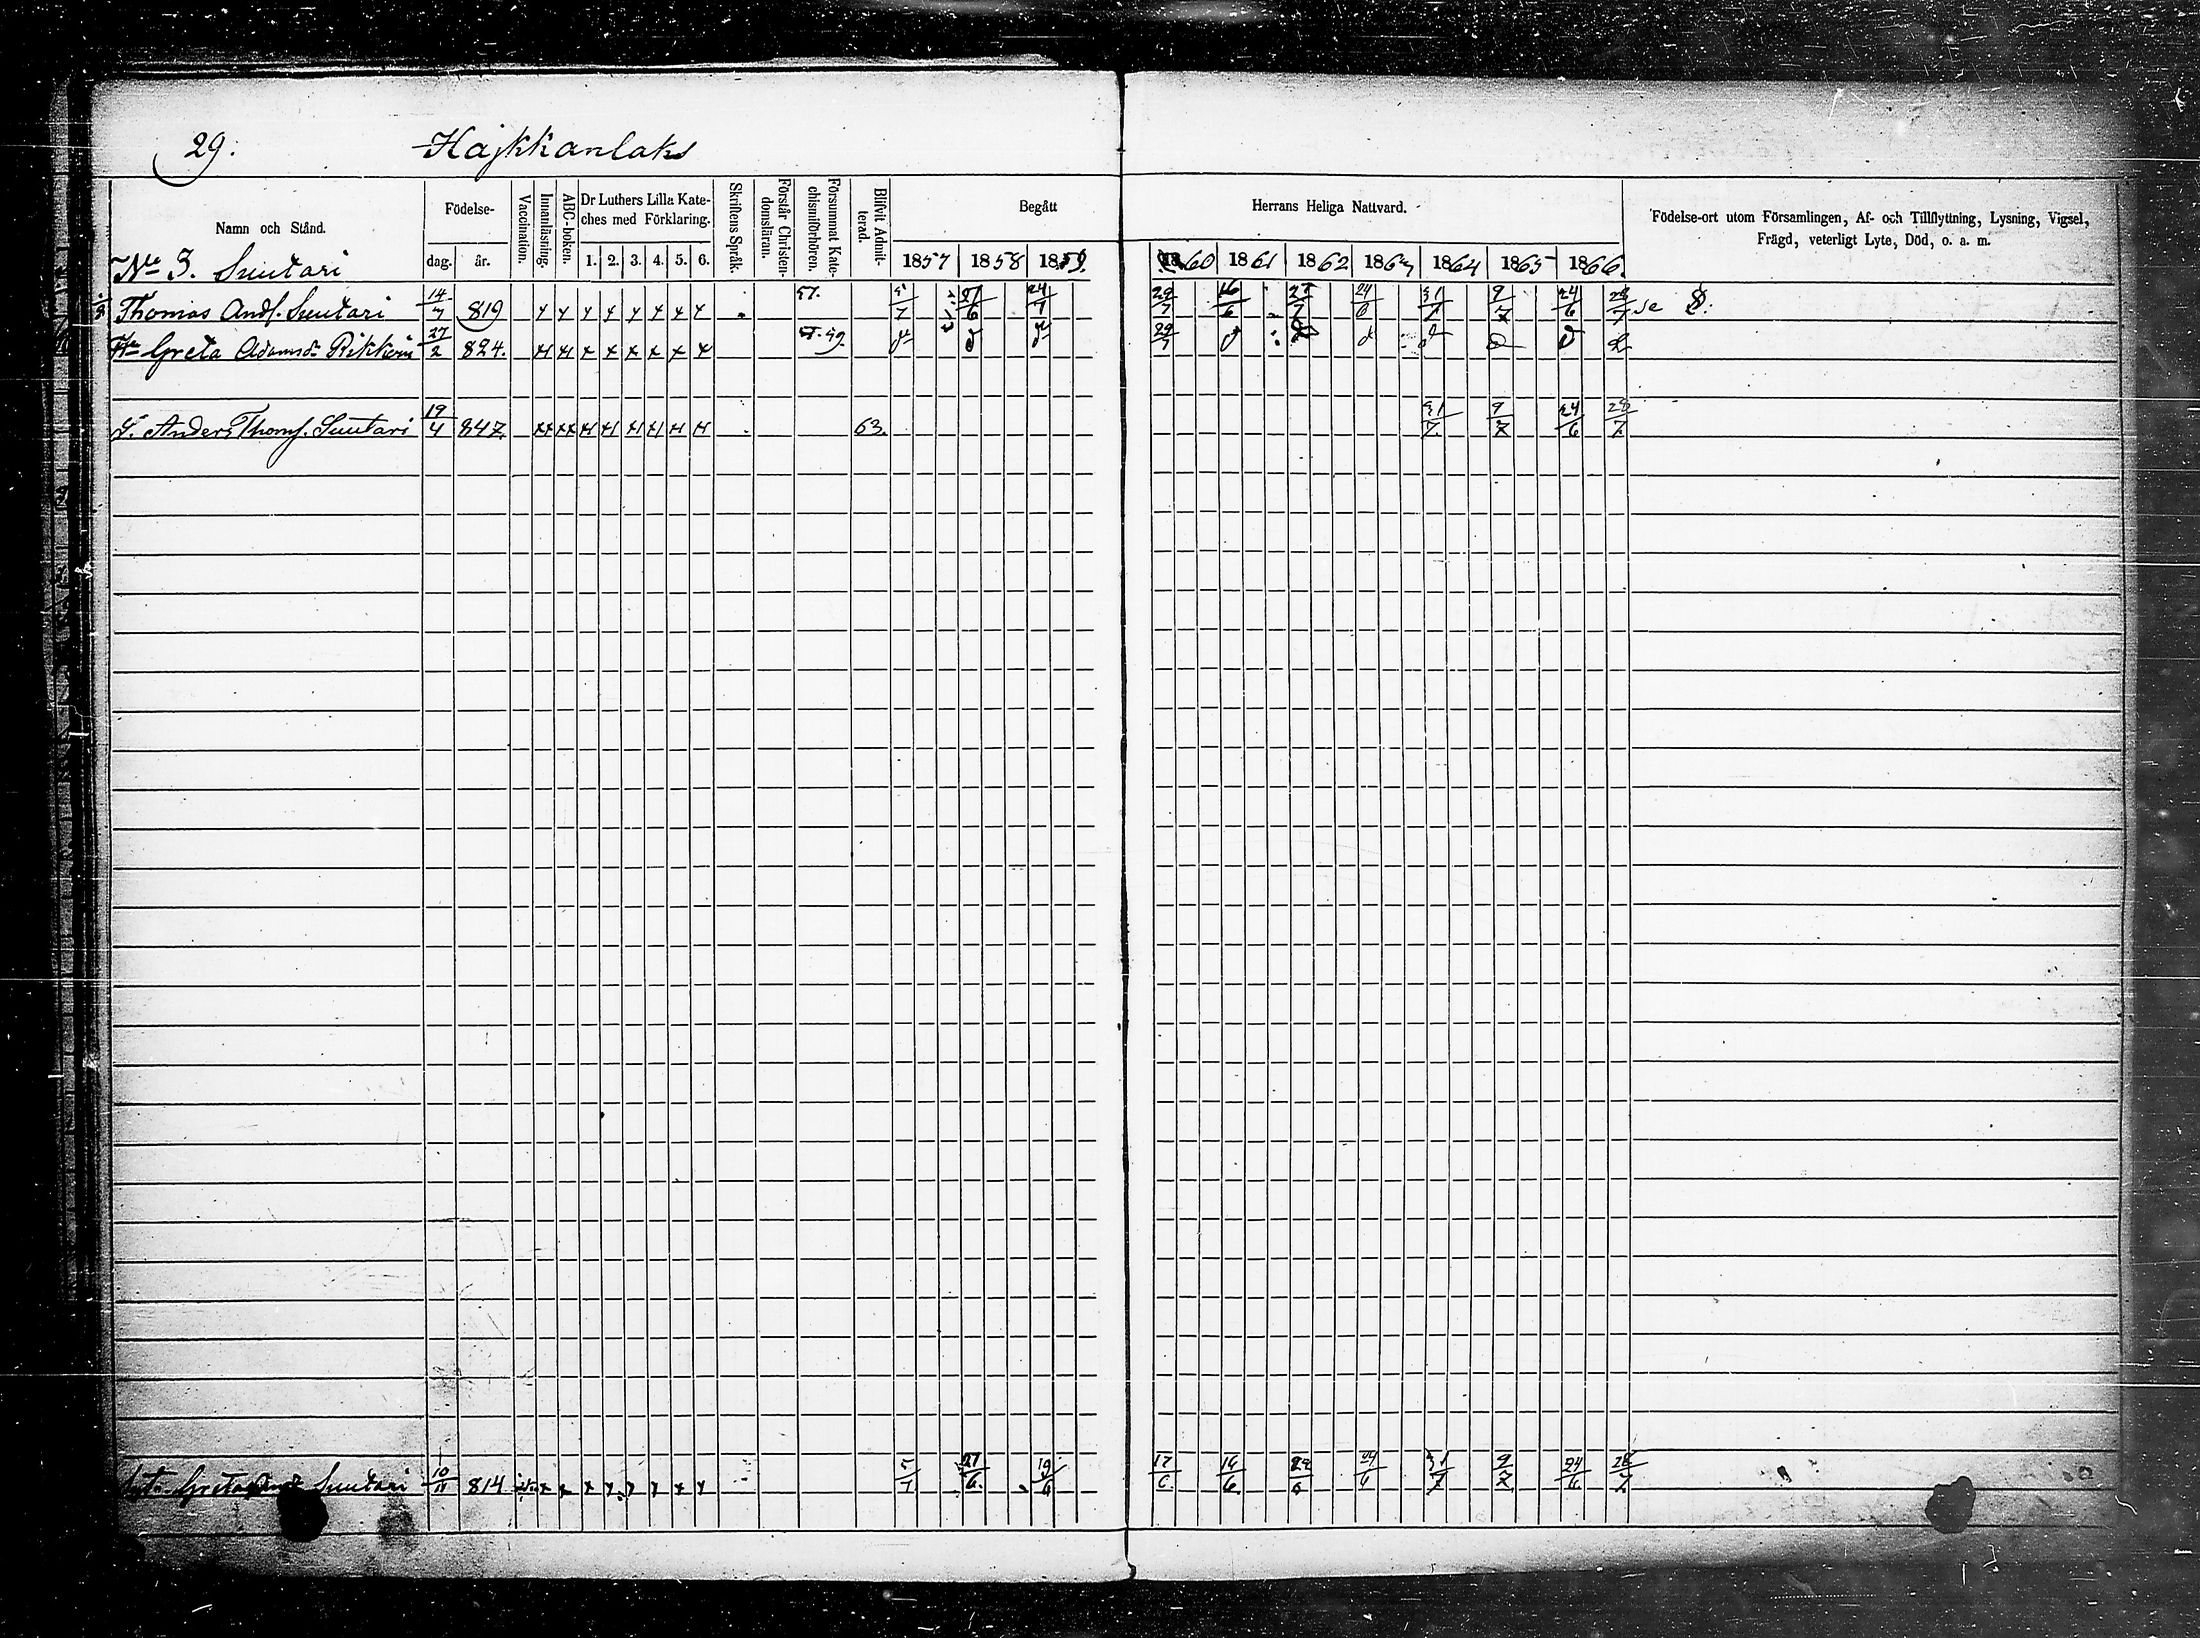 29. Hajkkanlaks
Namn och Stånd.
Födelse-
dag. år.
Vaccination.
Innanläsning.
ABC-boken.
Dr Luthers Lilla Kate-
ches med Förklaring.
1. 2. 3. 4. 5. 6.
Skriftens Språk.
Förstår Christen-
domsläran.
Försummat Kate-
chismiförhören.
Blifvit Admit-
terad.
Begått Herrans Heliga Nattvard.
1857 1858 1859. 1860 1861 1862 1863 1864 1865 1866.
Födelse-ort utom Församlingen, Af- och Tillflyttning, Lysning, Vigsel,
Frägd, veterligt Lyte, Död, o. a. m.
No 3. Suutari
Thomas Andf. Suutari 14/7 819 x x x x x x x x 57. 5/7 27/6 24/7 29/7 16/6 27/7 24/6 31/7 9/7 24/6 28/7 se
Hu Greta Adamsdr Pikkein 27/2 824. x x x x x x x x 57. 59. 29/7
S. Anders Thomf. Suutari 19/4 847. 63. 31/7 9/7 24/6 28/7
Greta Suutari 10/11 814 5/7 27/6 19/6 17/6 16/6 24/6 31/7 9/7 24/6 28/7